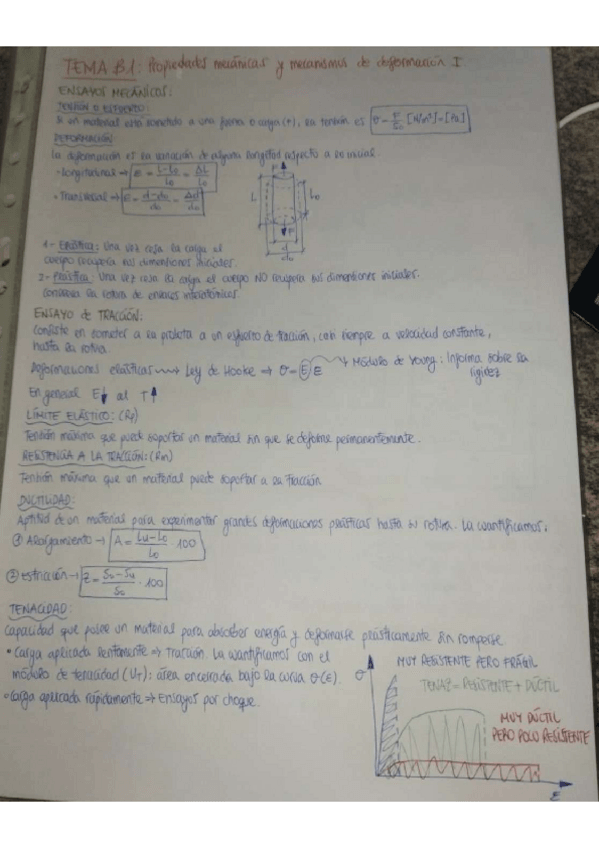 TEMA B1: Propiedades mecánicas y mecanismos de deformación I
ENSAYOS MECÁNICOS:
TENSIÓN O ESFUERZO:
Si un material está sometido a una fuerza o carga (F), su tensión es σ = F/S₀ [N/m²] = [Pa]
DEFORMACIÓN:
La deformación es la variación de alguna longitud respecto a la inicial.
• Longitudinal → ε = (L-L₀)/L₀ = ΔL/L₀
• Transversal → ε = (d-d₀)/d₀ = Δd/d₀
F
L
L₀
F
d
d₀
1- Elástica: Una vez cesa la carga el
cuerpo recupera sus dimensiones iniciales.
2- Plástica: Una vez cesa la carga el cuerpo NO recupera sus dimensiones iniciales.
Conlleva la rotura de enlaces interatómicos.
ENSAYO de TRACCIÓN:
Consiste en someter a la probeta a un esfuerzo de tracción, casi siempre a velocidad constante,
hasta la rotura.
Deformaciones elásticas → Ley de Hooke ⇒ σ = E ε → Módulo de Young: Informa sobre la
rigidez
En general E↓ al T↑
LÍMITE ELÁSTICO: (Rp)
Tensión máxima que puede soportar un material sin que se deforme permanentemente.
RESISTENCIA A LA TRACCIÓN: (Rm)
Tensión máxima que un material puede soportar a la tracción
DUCTILIDAD:
Aptitud de un material para experimentar grandes deformaciones plásticas hasta su rotura. La cuantificamos:
① Alargamiento → A = (Lu-L₀)/L₀ · 100
② estricción → Z = (S₀-Su)/S₀ · 100
TENACIDAD:
Capacidad que posee un material para absorber energía y deformarse plásticamente sin romperse.
• Carga aplicada lentamente ⇒ Tracción. La cuantificamos con el
módulo de tenacidad (UT): área encerrada bajo la curva σ(ε).
• Carga aplicada rápidamente ⇒ Ensayos por choque.
σ
MUY RESISTENTE PERO FRÁGIL
TENAZ = RESISTENTE + DÚCTIL
MUY DÚCTIL
PERO POCO RESISTENTE
ε